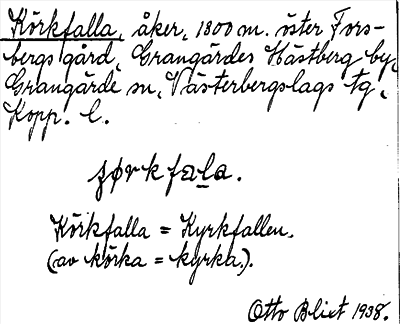 Körkfalla, åker, 1800 m. öster Fors-
bergs gård, Grangärdes Hästberg by,
Grangärde sn, Västerbergslags tg,
Kopp. l.
førkfala.
Körkfalla = Kyrkfallen.
(av körka = kyrka.).
Otto Blixt 1938.